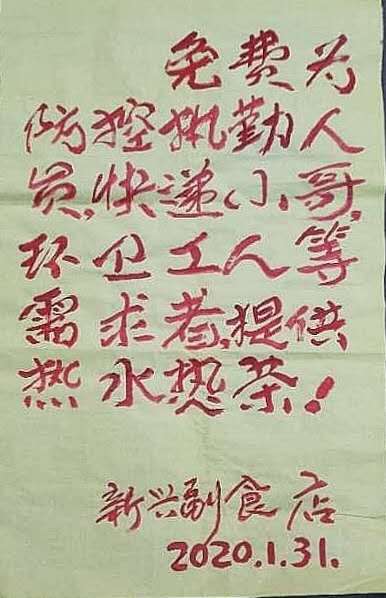 免费为
防控执勤人
员,快递小哥,
环卫工人等
需求者,提供
热水热茶!
新兴副食店
2020.1.31.